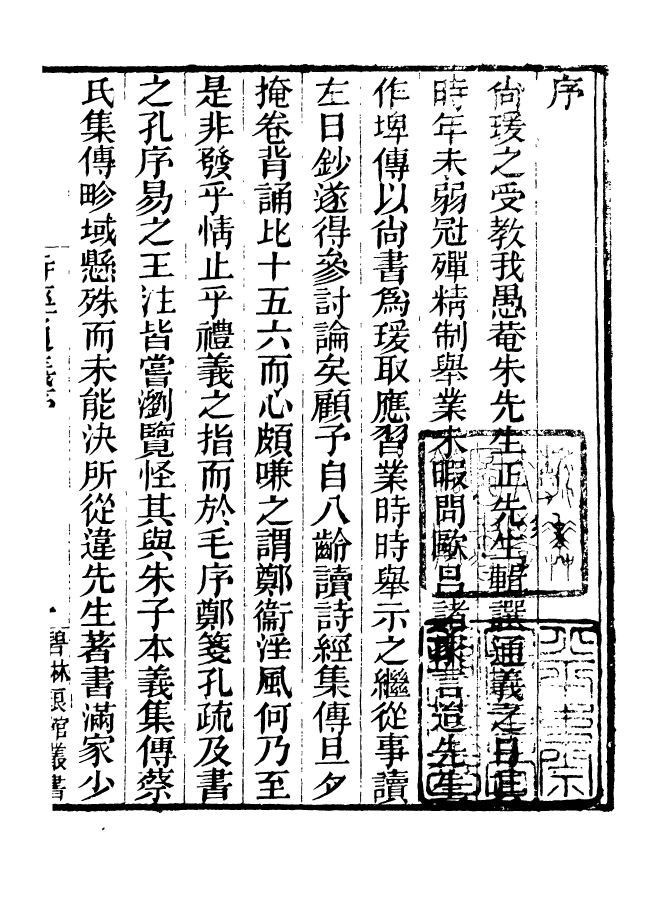 序
尙瑗之受教我愚菴朱先生正先生輯譔通義之日其
時年未弱冠殫精制舉業未暇問歐呂諸家言迨先生
作埤傳以尙書爲瑗取應習業時時舉示之繼從事讀
左日鈔遂得參討論矣顧予自八齡讀詩經集傳旦夕
掩卷背誦比十五六而心頗嗛之謂鄭衞淫風何乃至
是非發乎情止乎禮義之指而於毛序鄭箋孔疏及書
之孔序易之王注皆嘗瀏覽怪其與朱子本義集傳蔡
氏集傳畛域懸殊而未能決所從違先生著書滿家少
詩經通義序
碧琳琅館叢書